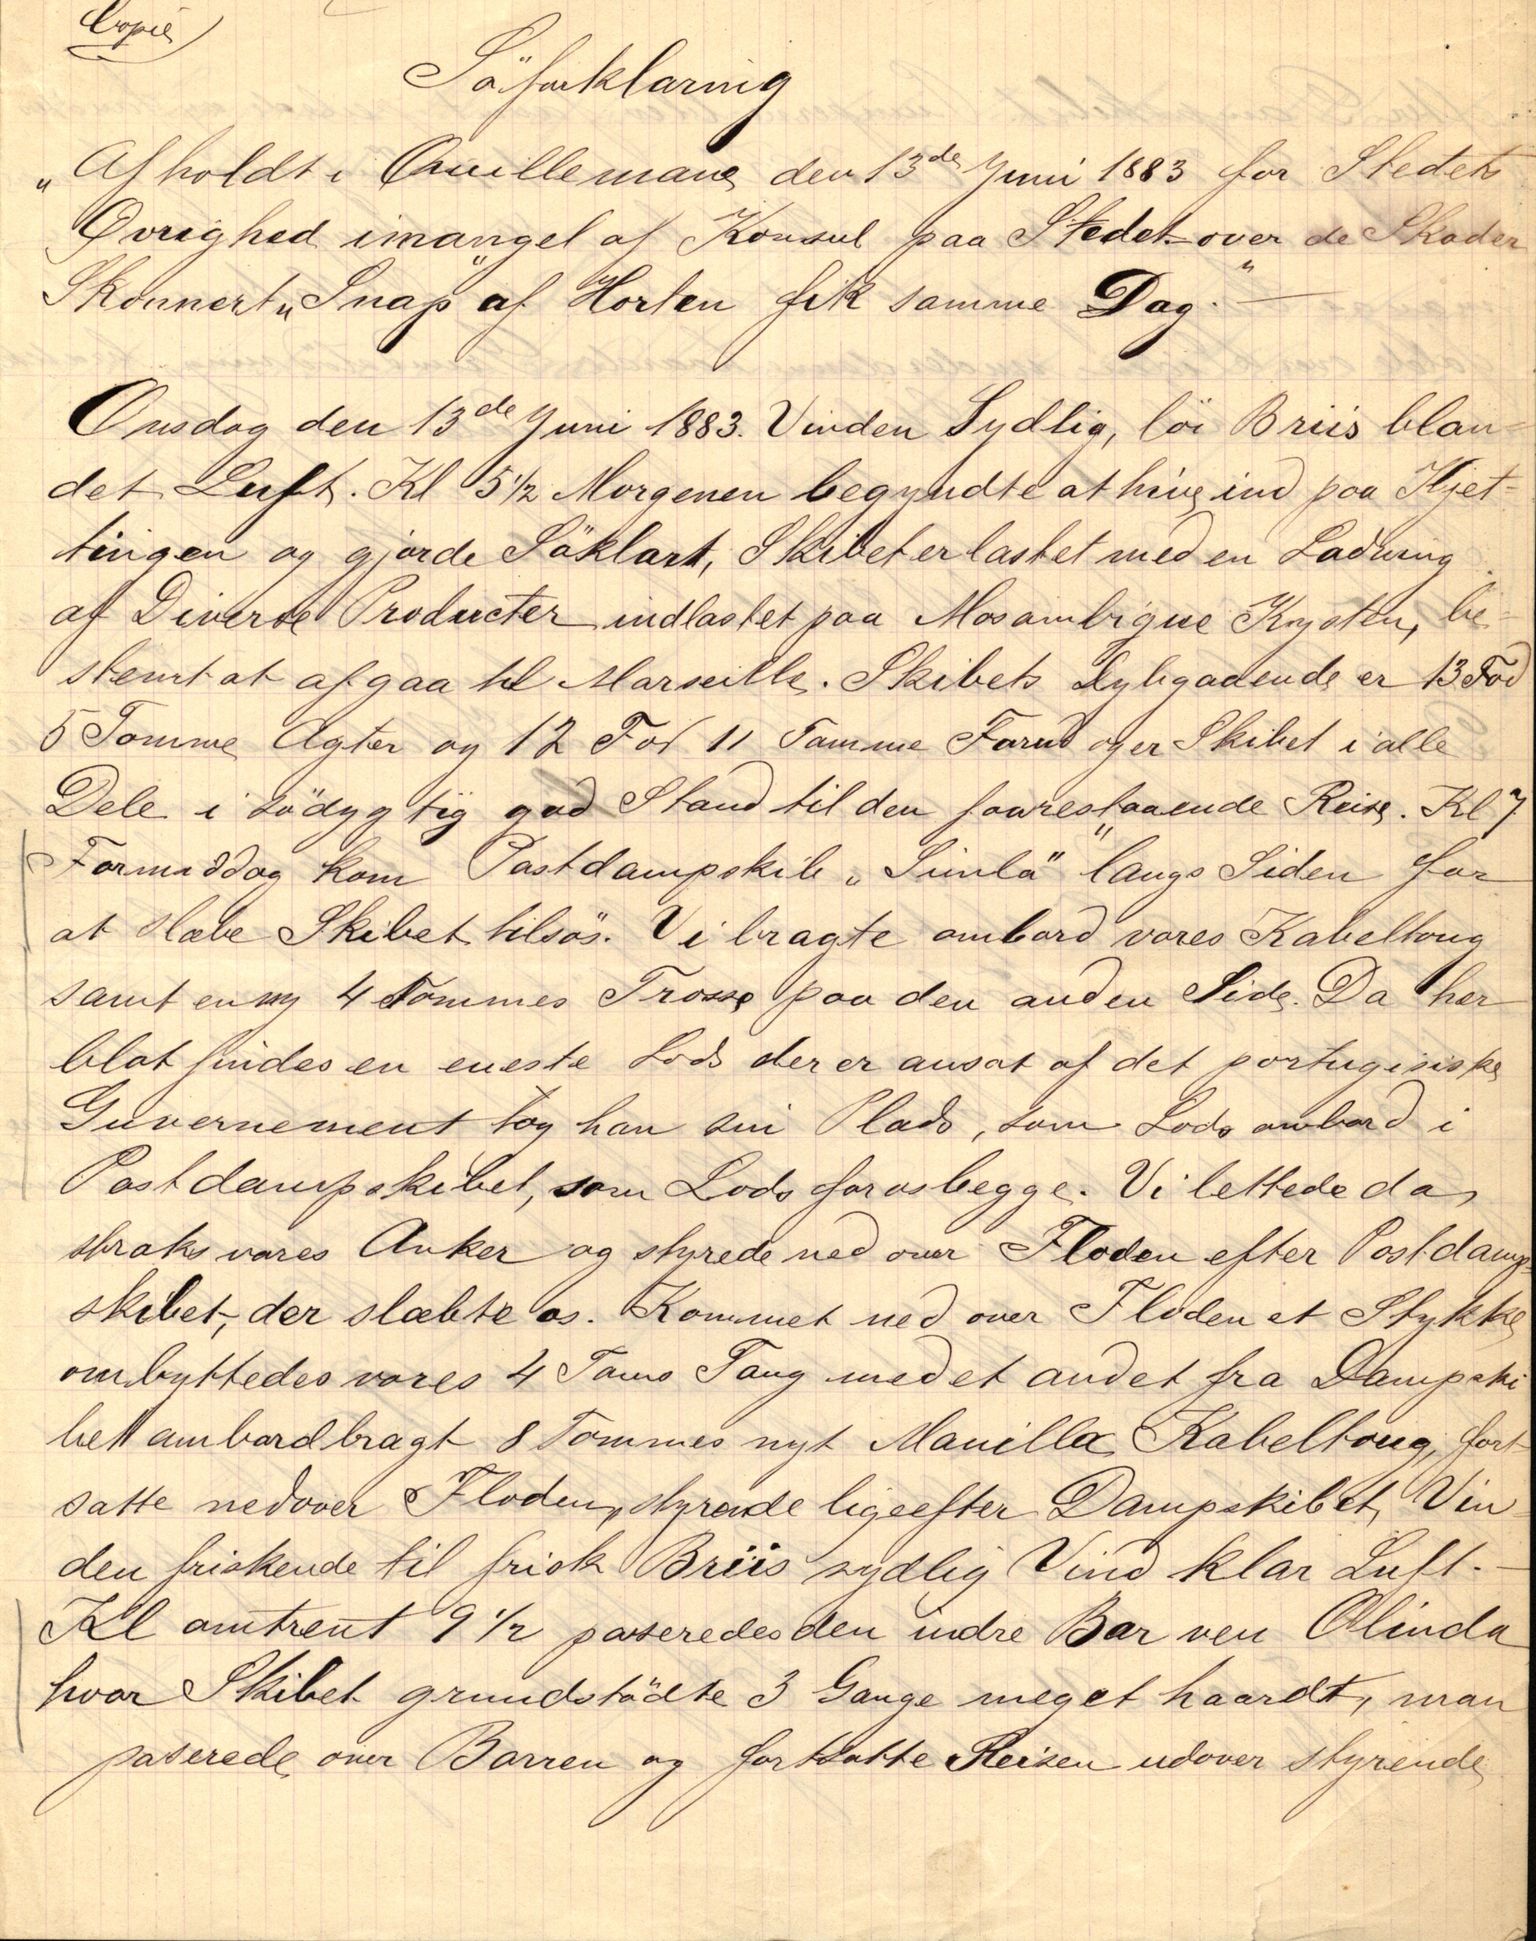 Copie
Söforklaring
„Afholdt i Quillemane den 13de Juni 1883 for Stedets
Øvrighed imangel af Konsul paa Stedet over de Skader
Skonnert „Snap" af Horten fik samme Dag." —
Onsdag den 13de Juni 1883. Vinden Sydlig, löi Briis blan-
det Luft. Kl 5½ Morgenen begyndte at hive ind paa Kjet-
tingen og gjorde Söklart, Skibet er lastet med en Ladning
af Diverse Producter indlastet paa Mosambique Kysten, be-
stemt at afgaa til Marseille. Skibets Dybgaaende er 13 Fod
5 Tomme Agter og 12 Fod 11 Tomme Forud og er Skibet i alle
Dele i södygtig god Stand til den forrestaaende Reise. Kl 7
Formiddag kom Postdampskib „Simla" langs Siden for
at slæbe Skibet tilsös. Vi bragte ombord vores Kabeltoug
samt en ny 4 Tommes Trosse paa den anden Side. Da her
blot findes en eneste Lods der er ansat af det portugisiske
Guvernement tog han sin Plads, som Lods ombord i
Postdampskibet, som Lods for os begge. Vi lettede da
straks vores Anker og styrede ned over Floden efter Postdamp-
skibet, der slæbte os. Kommet ned over Floden et Stykke
ombyttedes vores 4 Toms Toug med et andet fra Dampski
bet ambordbragt 8 Tommes nyt Manilla Kabeltoug, fort-
satte nedover Floden, styrende ligeefter Dampskibet, Vin-
den friskende til frisk Briis sydlig Vind klar Luft. —
Kl omtrent 9½ paseredes den indre Bar ven Olinda
hvor Skibet grundstödte 3 Gange meget haardt, man
paserede over Barren og fortsatte Reisen udover styrende